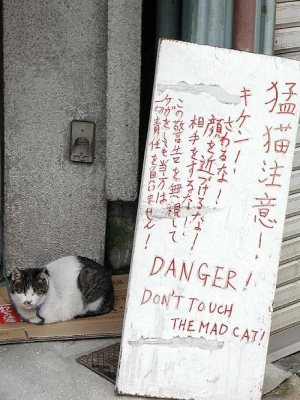 猛猫注意!
キケン!
さわるな!
顔を近づけるな!
相手をするな!
この警告を無視して
ケガをしても当方は
一切責任を負いません!
DANGER!
DON'T TOUCH
THE MAD CAT!